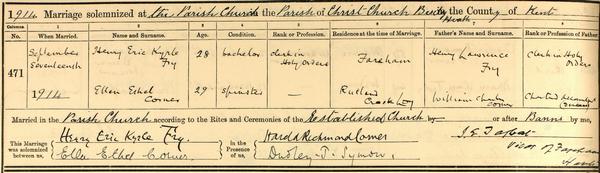 1914 Marriage solemnized at the Parish Church in the Parish of Christ Church Bexley Heath in the County of Kent
Columns 1 2 3 4 5 6 7 8
No. When Married. Name and Surname. Age. Condition. Rank or Profession. Residence at the time of Marriage. Father's Name and Surname. Rank or Profession of Father.
471
September Seventeenth 1914
Henry Eric Kyrle Fry 28 bachelor clerk in Holy Orders Fareham Henry Lawrence Fry Clerk in Holy Orders
Ellen Ethel Corner 29 spinster — William Charles Corner
Married in the Parish Church according to the Rites and Ceremonies of the Established Church by or after Banns by me,
This Marriage was solemnized between us, Henry Eric Kyrle Fry.
Ellen Ethel Corner.
in the Presence of us, Richmond Corner
Dudley J. Symon,
Vicar of Fareham
Hants